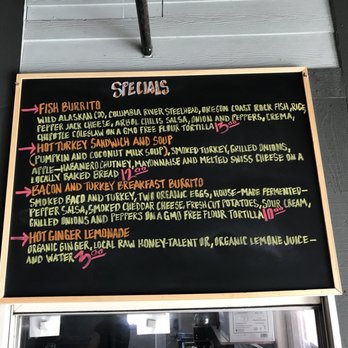 SPECIALS
→FISH BURRITO
WILD ALASKAN COD, COLUMBIA RIVER STEELHEAD, OREGON COAST ROCK FISH, RICE,
PEPPER JACK CHEESE, ARBOL CHILIS SALSA, ONION AND PEPPERS, CREMA,
CHIPOTLE COLESLAW ON A GMO FREE FLOUR TORTILLA 13.00
→HOT TURKEY SANDWICH AND SOUP
(PUMPKIN AND COCONUT MILK SOUP), SMOKED TURKEY, GRILLED ONIONS,
APPLE-HABANERO CHUTNEY, MAYONNAISE AND MELTED SWISS CHEESE ON A
LOCALLY BAKED BREAD 12.00
→BACON AND TURKEY BREAKFAST BURRITO
SMOKED BACO AND TURKEY, TWO ORGANIC EGGS, HOUSE-MADE FERMENTED-
PEPPER SALSA, SMOKED CHEDDAR CHEESE, FRESH CUT POTATOES, SOUR CREAM,
GRILLED ONIONS AND PEPPERS ON A GMO FREE FLOUR TORTILLA 10.00
→HOT GINGER LEMONADE
ORGANIC GINGER, LOCAL RAW HONEY-TALENT OR, ORGANIC LEMONE JUICE-
AND WATER 3.00